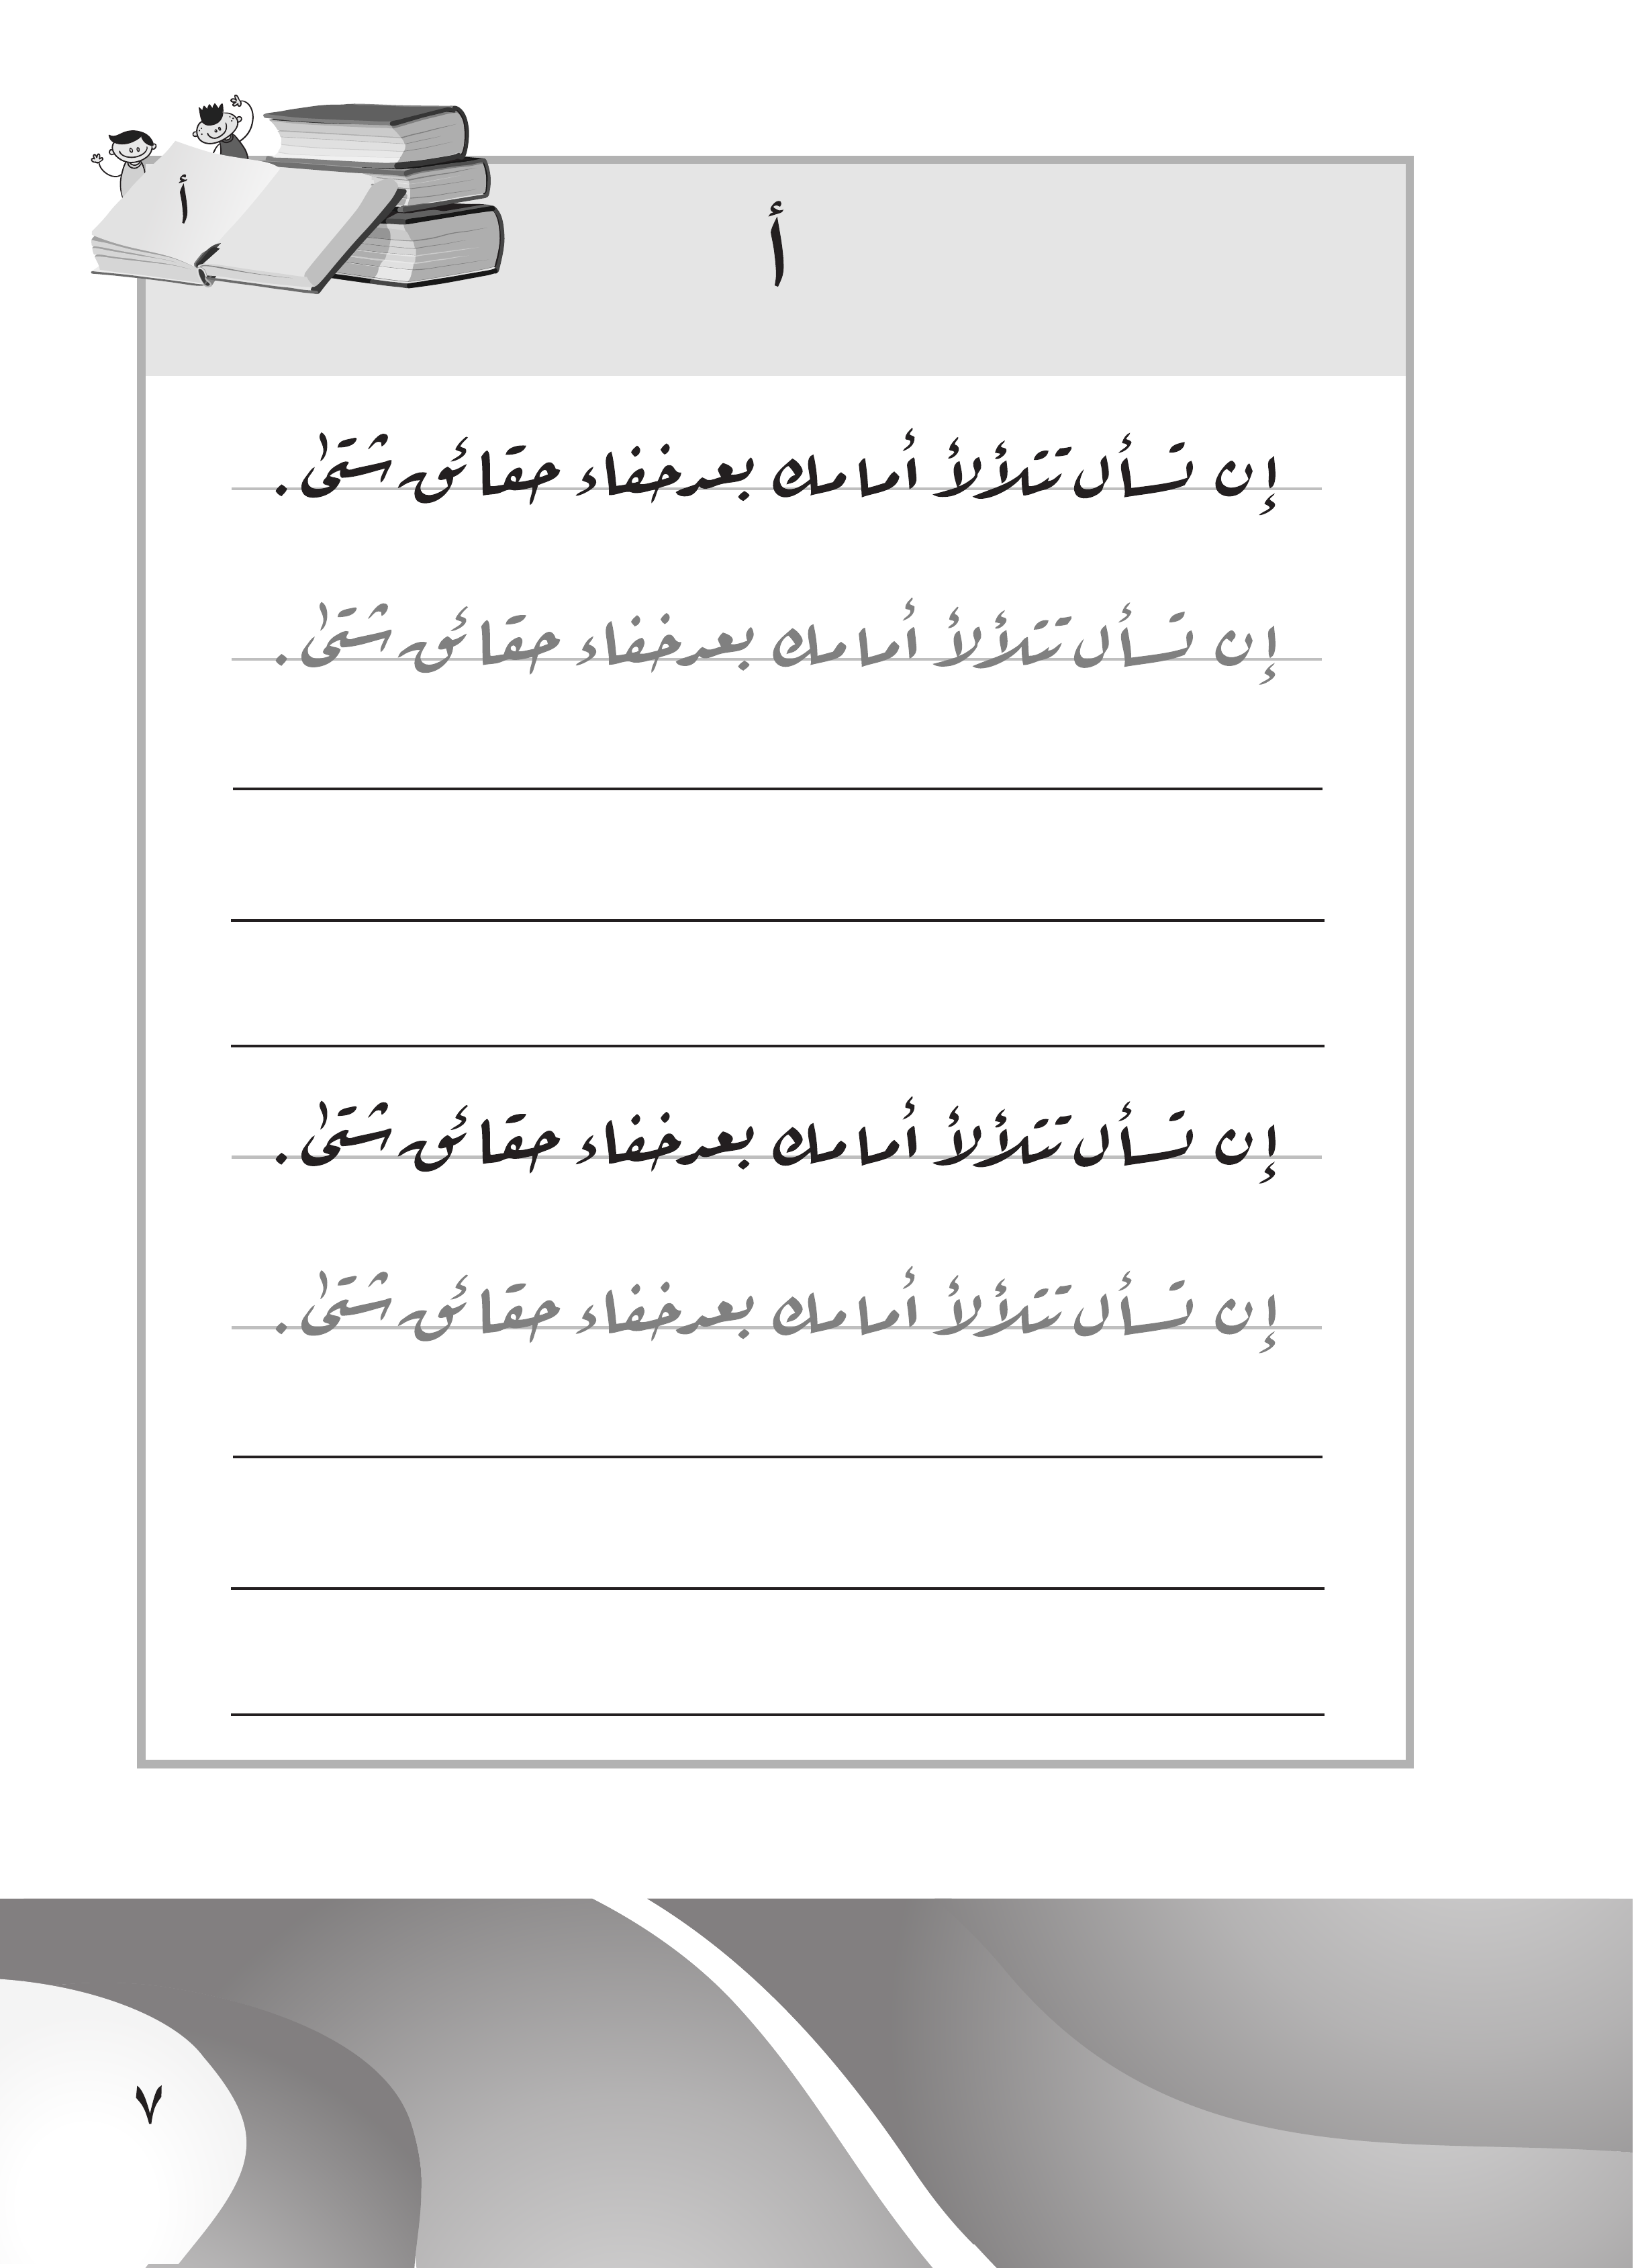 أ
أ
إن تسأل تتلألأ أمامك بعد خفاء حقائق شتى .
إن تسأل تتلألأ أمامك بعد خفاء حقائق شتى .
إن تسأل تتلألأ أمامك بعد خفاء حقائق شتى .
إن تسأل تتلألأ أمامك بعد خفاء حقائق شتى .
٧